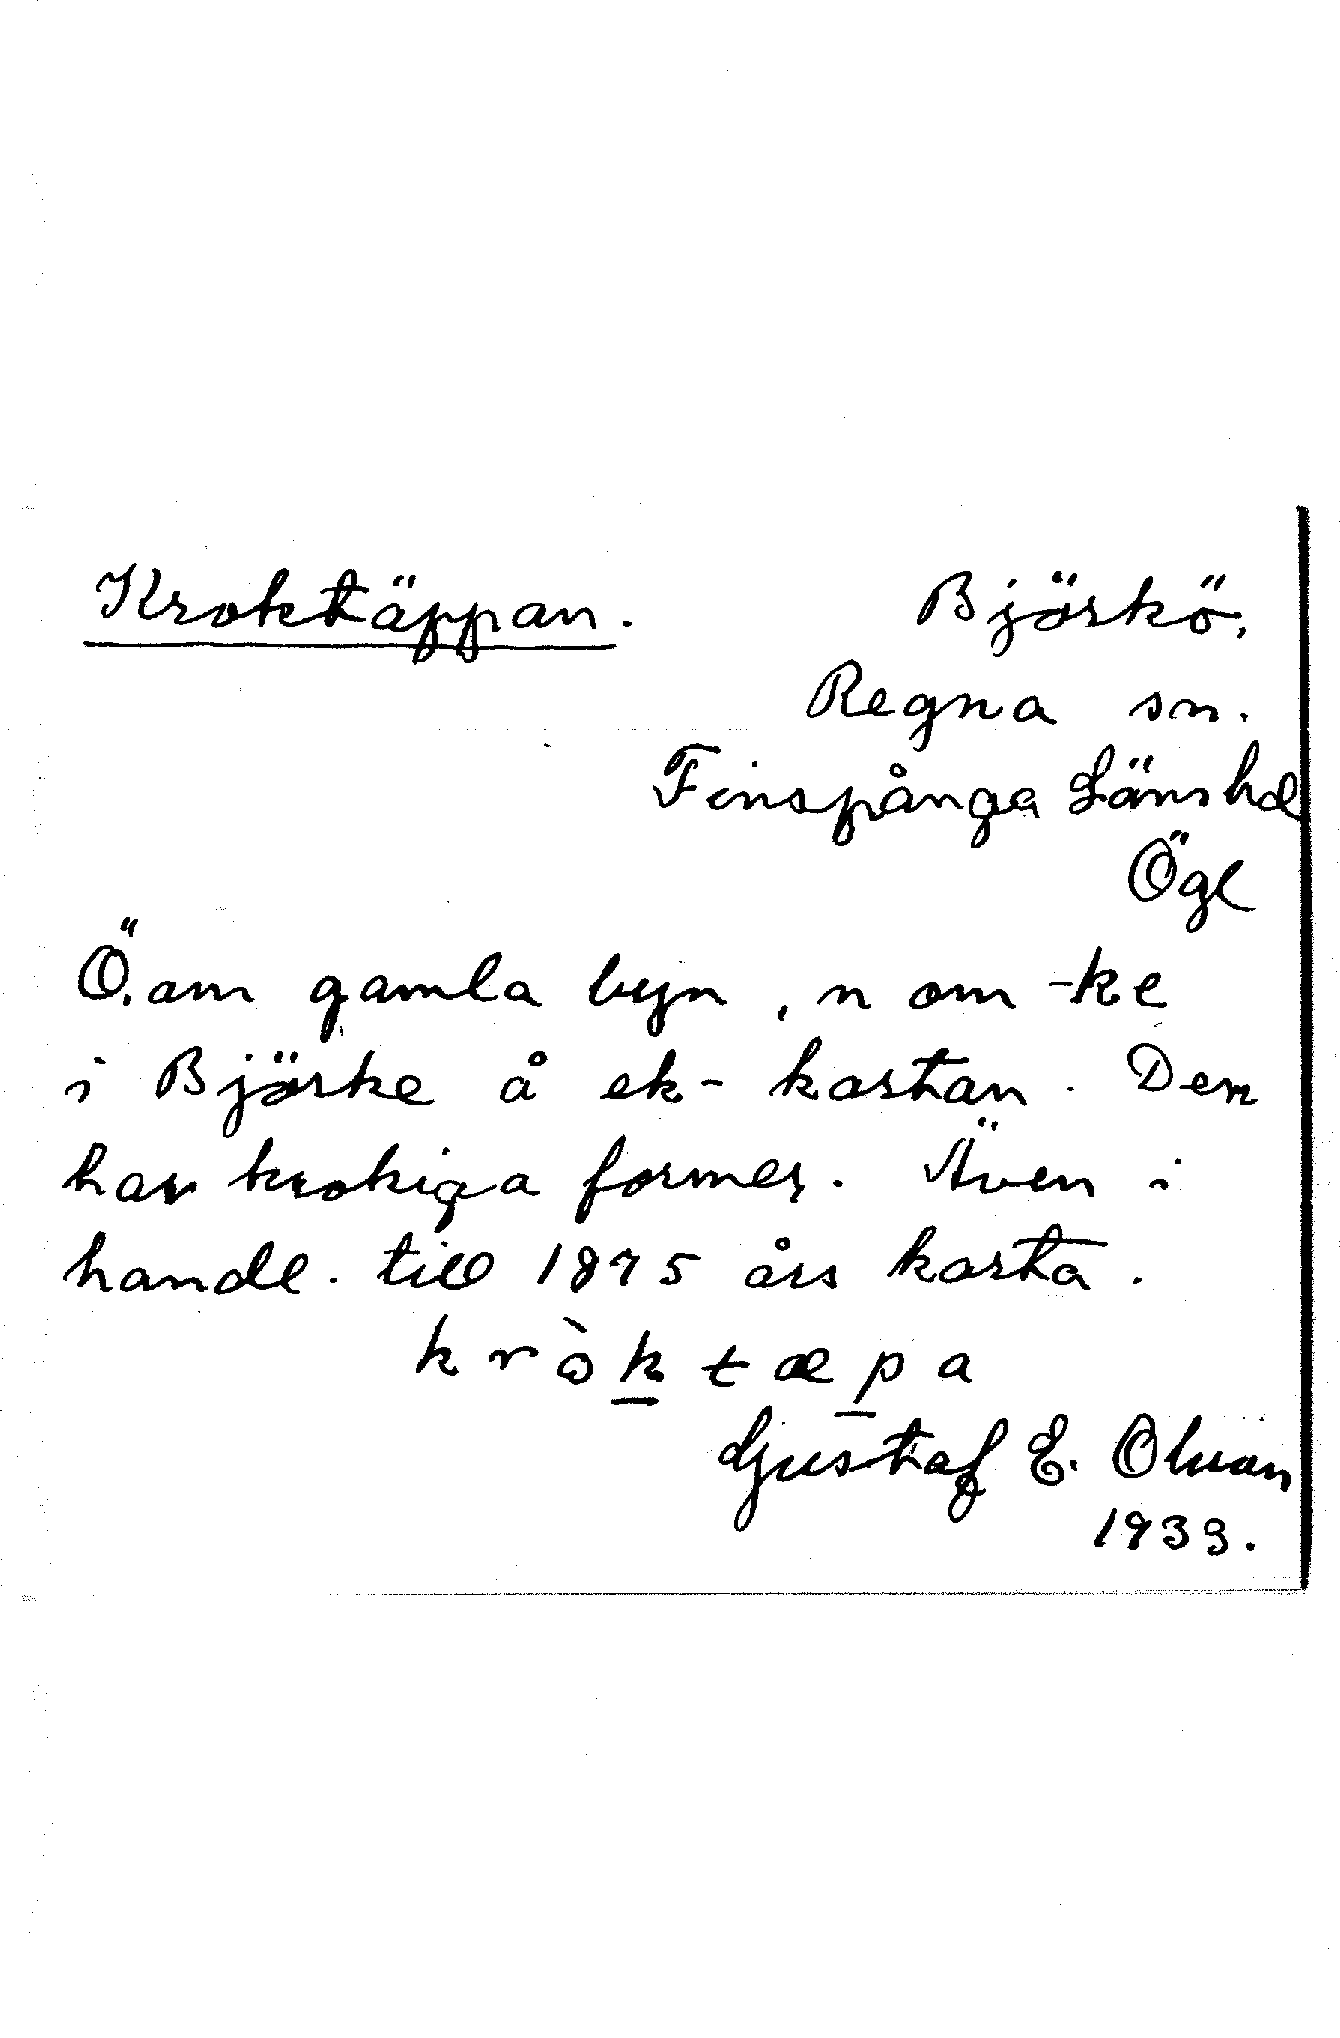 Kroktäppan. Björkö,
Regna sn.
Finspånga Länshd
Ögl
Ö.om gamla byn, n om -ke
i Björke å ek-kartan. Den
har krokiga former. Även i
handl. till 1875 års karta.
kròktæpa
Gustaf E. Olván
1933.